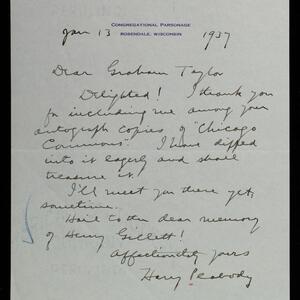 CONGREGATIONAL PARSONAGE
ROSENDALE, WISCONSIN
Jan 13 1937
Dear Graham Taylor
Delighted! I thank you
for including me among your
autograph copies of "Chicago
Commons". I have dipped
into it eagerly and shall
treasure it!
I'll meet you there yet,
sometime.
Hail to the dear memory
of Henry Gillett!
Affectionately yours
Harry Peabody